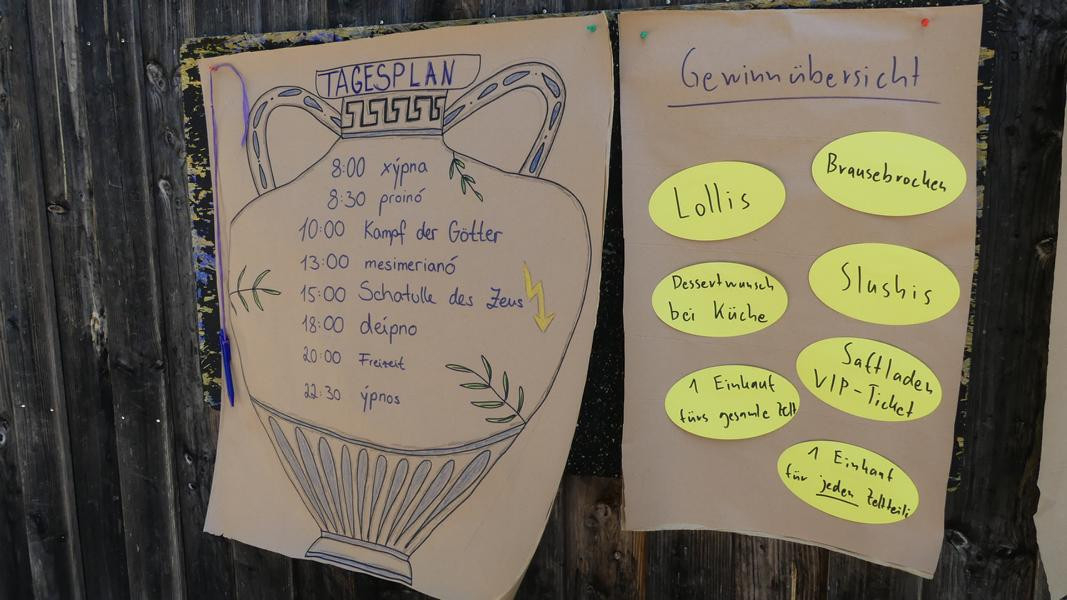 TAGESPLAN
8:00 xýpna
8:30 proinó
10:00 Kampf der Götter
13:00 mesimerianó
15:00 Schatulle des Zeus
18:00 deípno
20:00 Freizeit
22:30 ýpnos
Gewinnübersicht
Lollis
Brausebrocken
Dessertwunsch
bei Küche
Slushis
1 Einkauf
fürs gesamte Zelt
Saftladen
VIP-Ticket
1 Einkauf
für jeden Zeltteili